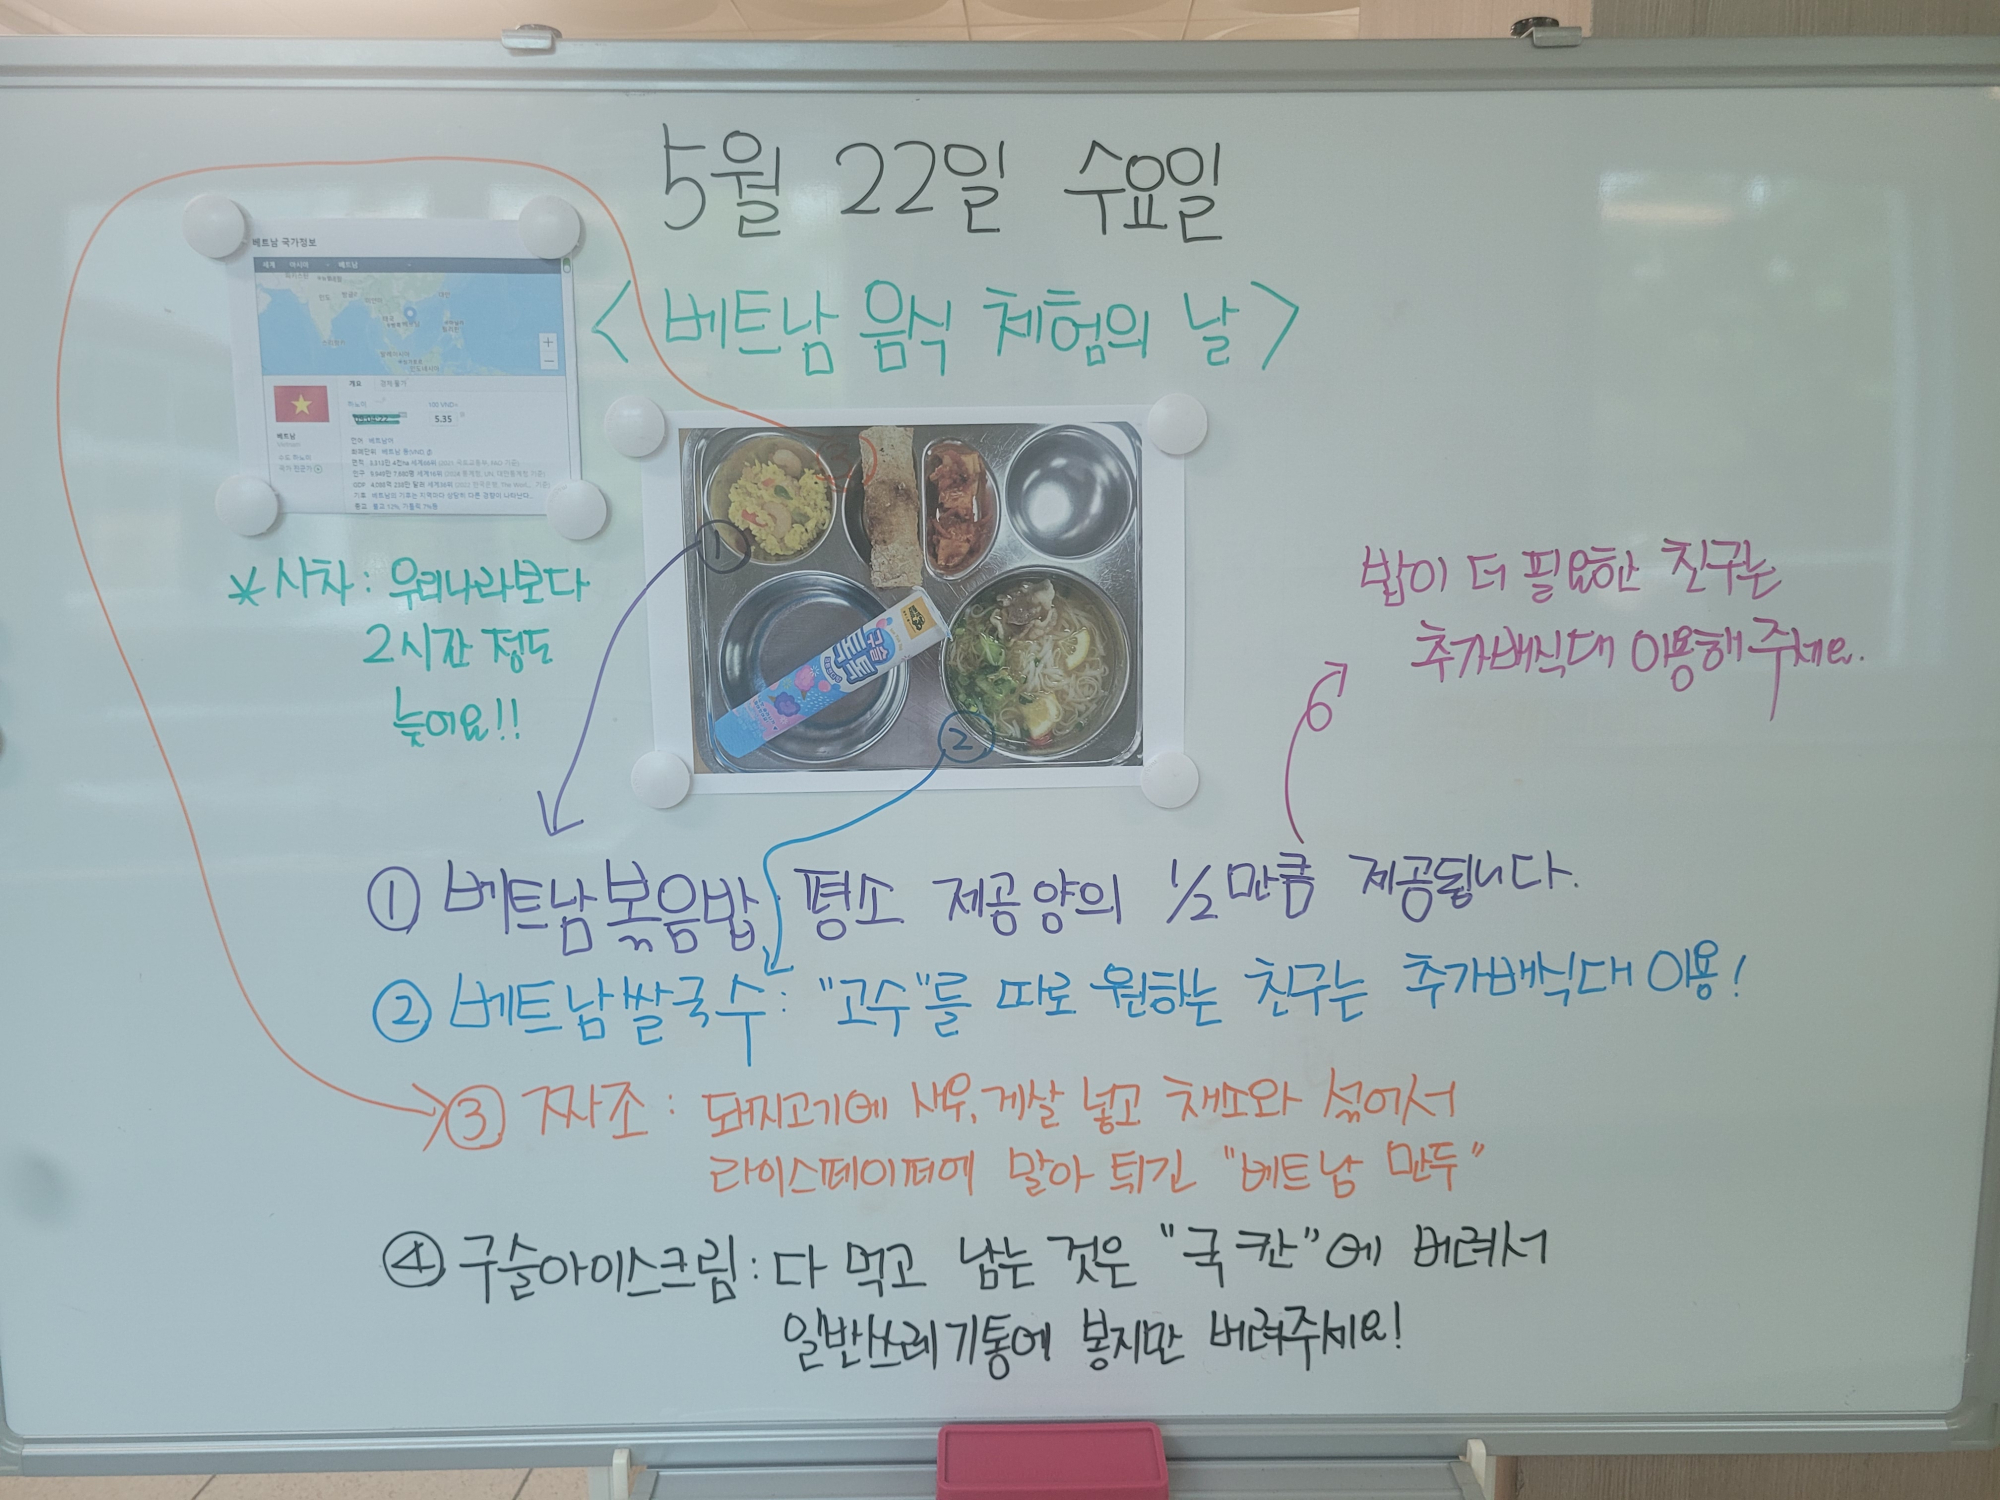 5월 22일 수요일
<베트남 음식 체험의 날>
베트남 국가정보
세계 아시아 베트남
개요
하노이
100 VND=
5.35
베트남
언어 베트남어
*시차: 우리나라보다
2시간 정도
늦어요!!
③
①
②
밥이 더 필요한 친구는
추가배식대 이용해주세요.
① 베트남볶음밥 평소 제공양의 1/2만큼 제공됩니다.
② 베트남쌀국수: "고수"를 따로 원하는 친구는 추가배식대 이용!
③ 짜조: 돼지고기에 새우,게살 넣고 채소와 섞어서
라이스페이퍼에 말아 튀긴 "베트남 만두"
④ 구슬아이스크림: 다 먹고 남는 것은 "국 칸"에 버려서
일반쓰레기통에 봉지만 버려주세요!